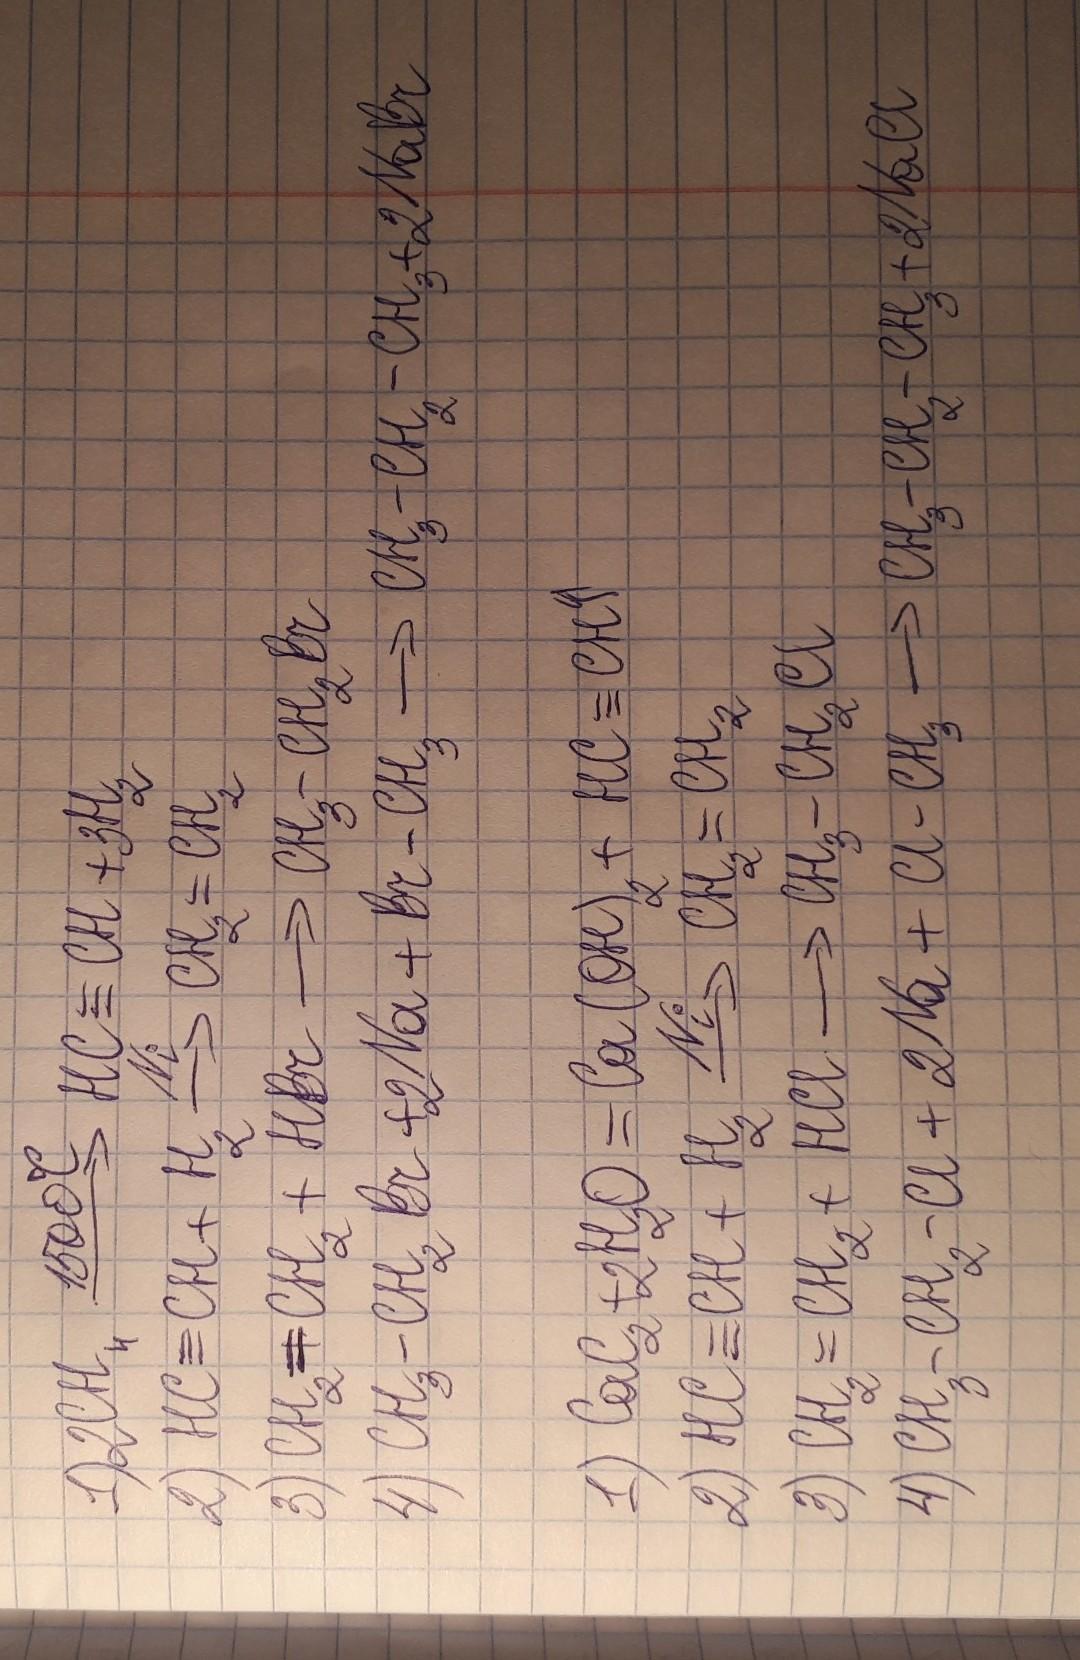 1) 2CH₄ 1500°C → HC≡CH + 3H₂
2) HC≡CH + H₂ Ni → CH₂=CH₂
3) CH₂=CH₂ + HBr → CH₃-CH₂Br
4) CH₃-CH₂Br + 2Na + Br-CH₃ → CH₃-CH₂-CH₃ + 2NaBr
1) CaC₂ + 2H₂O = Ca(OH)₂ + HC≡CH↑
2) HC≡CH + H₂ Ni → CH₂=CH₂
3) CH₂=CH₂ + HCl → CH₃-CH₂Cl
4) CH₃-CH₂-Cl + 2Na + Cl-CH₃ → CH₃-CH₂-CH₃ + 2NaCl